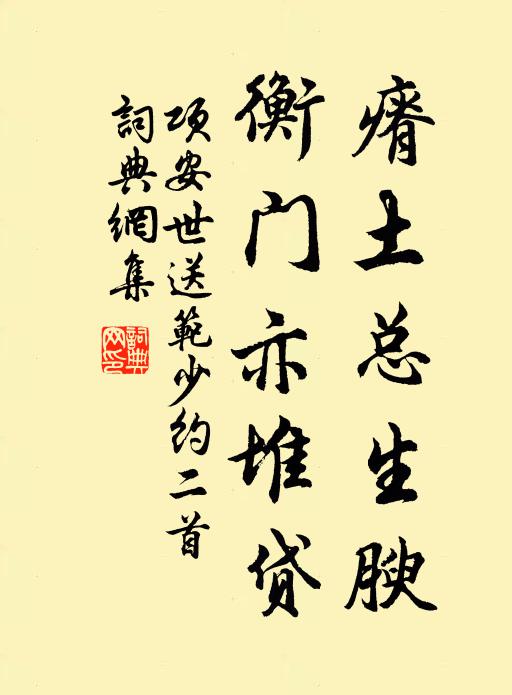 瘠土总生腴
衡门亦堆贷
项安世送範少约二首
詞典網集
詞典网印